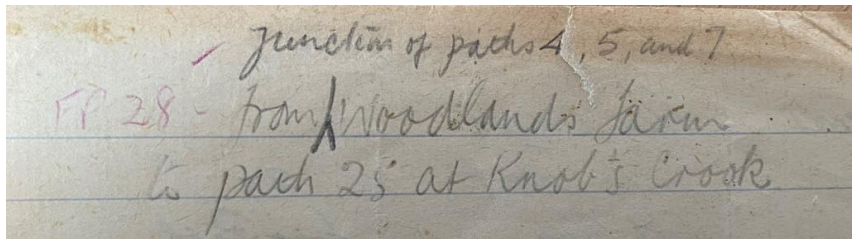 Junction of paths 4, 5, and 7
FP 28 - from Woodlands farm
to path 25 at Knob's Crook